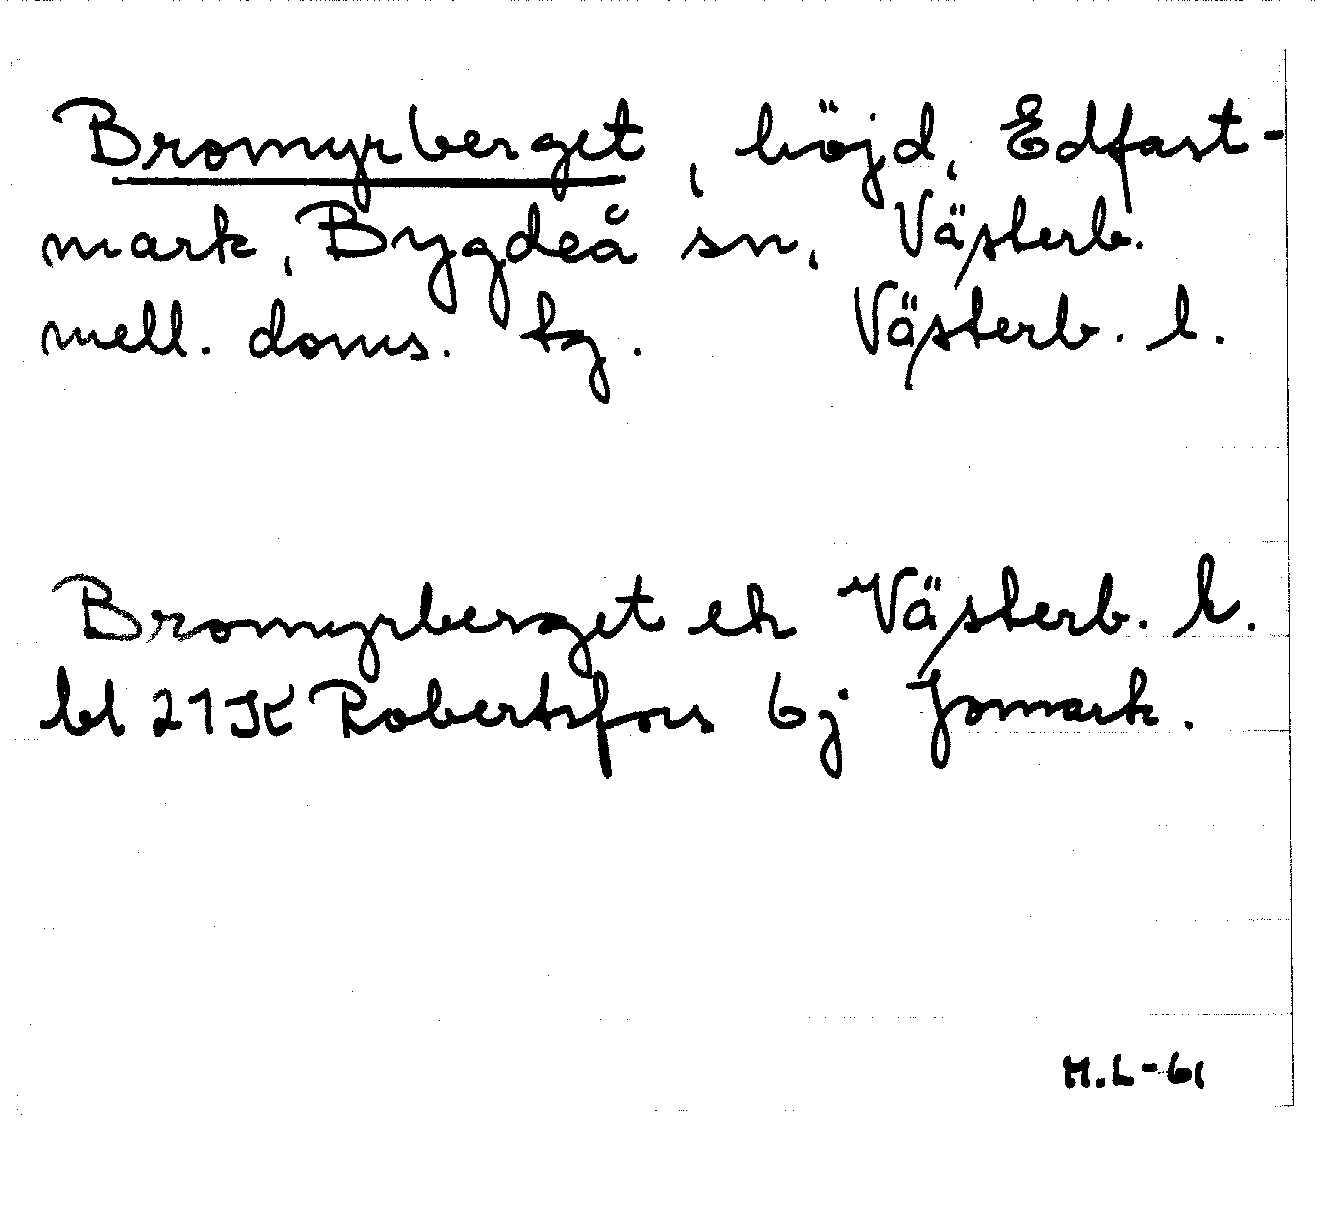 Bromyrberget, höjd, Edfast-
mark, Bygdeå sn, Västerb.
mell. doms. tg. Västerb. l.
Bromyrberget ek Västerb. l.
bl 21K Robertsfors 6j Jomark.
M.L-61